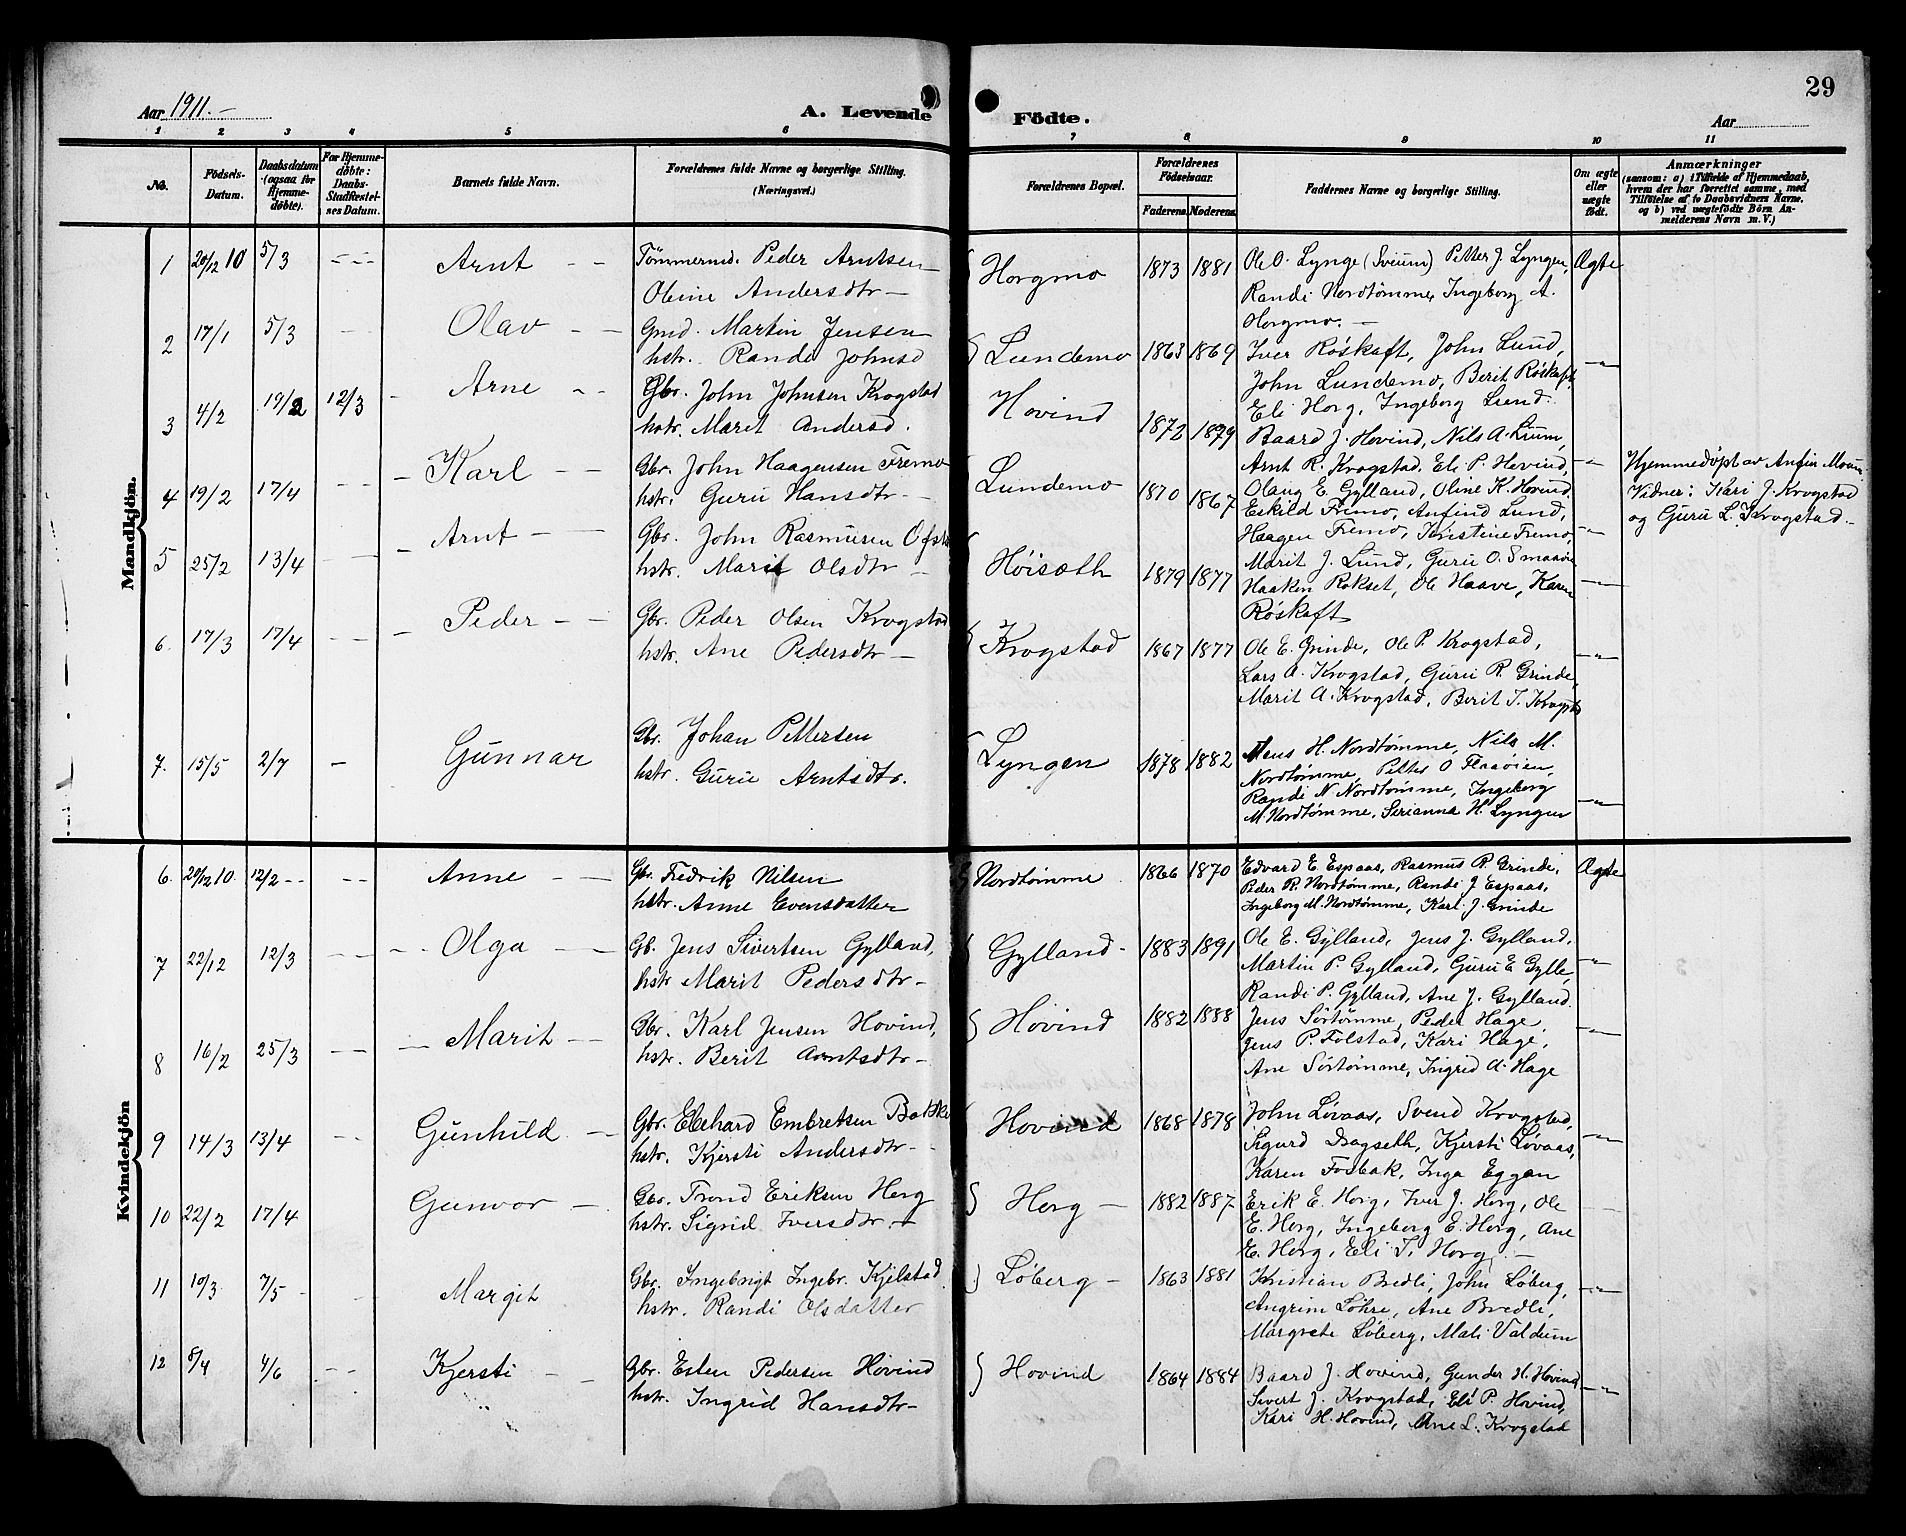 29
Aar 1911. A. Levende Födte. Aar
1 2 3 4 5 6 7 8 9 10 11
No. Födsels-Datum. Daabsdatum (ogsaa for Hjemmedöbte). For Hjemmedöbte: Daabs-Stadfæstelses Datum. Barnets fulde Navn. Forældrenes fulde Navne og borgerlige Stilling. (Næringsvei.) Forældrenes Bopæl. Forældrenes Födselsaar. Faderens. Moderens. Faddernes Navne og borgerlige Stilling. Om ægte eller uægte födt. Anmærkninger (saasom: a) i Tilfælde af Hjemmedaab, hvem der har forrettet samme, med Tilföielse af to Daabsvidners Navne. og b) ved uægtefödte Börn Anmelderens Navn m. V.)
Mandkjön.
1 20/12 10 5/3 Arnt Tömmermd. Peder Arntsen Horgmo 1873 1881 Ole O. Lynge (Sveium) Petter J. Lyngen, Ægte
Oline Andersdtr Randi Nordtømme, Ingeborg A.
Horgmo.
2 17/1 5/3 Olav Gmd. Martin Jensen Lundemo 1863 1869 Iver Röskaft, John Lund,
hstr. Randi Johnsd John Lundemo, Berit Röskaft
3 4/2 19/2 12/3 Arne Gbr. John Johnsen Krogstad Hovind 1872 1879 Eli Horg, Ingeborg Lund.
hstr. Marit Andersd. Baard J. Hovind, Nils A. Lium,
Arnt R. Krogstad, Eli P. Hovind, Hjemmedöpt av Anfin Moum
4 19/2 17/4 Karl Gbr. John Haagensen Fremo Lundemo 1870 1867 Olaug E. Gylland, Oline K. Hovind Vidner: Kari J. Krogstad
hstr. Guru Hansdtr Eskild Fremo, Anfind Lund, og Guru L. Krogstad
5 25/2 13/4 Arnt Gbr. John Rasmusen Høisæth 1879 1877 Haagen Fremo, Kristine Fremo,
hstr. Marit Olsdtr Marit J. Lund, Guru O.
Haaken Rokset, Ole Haave, Karen
Röskaft
6. 17/3 17/4 Peder Gbr. Peder Olsen Krogstad Krogstad 1867 1877 Ole E. Grinde, Ole P. Krogstad,
hstr. Ane Pedersdtr Lars A. Krogstad, Guru R. Grinde,
Marit A. Krogstad, Berit T. Krogsta
7. 15/5 2/7 Gunnar Gbr. Johan Pettersen Lyngen 1878 1882 Mens H. Nordtømme, Nils M.
hstr. Guru Arntsdtr. Nordtømme, Petter O Flaaöien,
Randi N. Nordtømme, Ingeborg
M. Nordtømme, Serianna H. Lyngen
Kvindekjön
6. 20/12 10. 12/2 Anne Gbr. Fredrik Nilsen Nordtømme 1866 1870 Edvard E. Espaas, Rasmus P. Grinde, Ægte
hstr. Anne Evensdatter Peder R. Nordtømme, Randi J. Espaas,
Ingeborg M. Nordtømme, Karl J. Grinde
7 22/12 12/3 Olga Gb. Jens Sivertsen Gylland, Gylland 1883 1891 Ole E. Gylland, Jens J. Gylland,
hstr Marit Pedersdtr Martin P. Gylland, Guru E Gylle,
Randi P. Gylland, Ane J. Gylland.
8 16/2 25/3 Marit Gbr. Karl Jensen Hovind, Hovind 1882 1888 Jens Sörtømme, Peder Hage,
hstr. Berit Arntsdtr Jens P. Folstad, Kari Hage,
Ane Sörtømme, Ingrid A. Hage
9 14/3 13/4 Gunhild Gbr. Edvhard Embretsen Hovind 1868 1878 John Lövaas, Svend Krogstad,
hstr. Kjersti Andersdtr Sigurd Dragseth, Kjersti Lövaas,
Karen Fosbak, Inga Eggen
10 22/2 17/4 Gunvor Gbr. Trond Eriksen Horg Horg 1882 1887 Erik E. Horg, Iver J. Horg, Ole
hstr. Sigrid Iversdtr E. Horg, Ingeborg E. Horg, Ane
E. Horg, Eli T. Horg.
11 19/3 7/5 Margit Gbr. Ingebrigt Ingebr. Kjelstad Löberg 1863 1881 Kristian Bredli, John Löberg,
hstr. Randi Olsdatter Angrim Löhre, Ane Bredli,
Margrete Löberg, Mali Valdum
12 8/4 4/6 Kjersti Gbr. Esten Pedersen Hovind Hovind 1864 1884 Baard J. Hovind, Gunder H. Hovind
hstr. Ingrid Hansdtr Sivert J. Krogstad, Eli P. Hovind,
Kari H. Hovind, Ane L. Krogstad